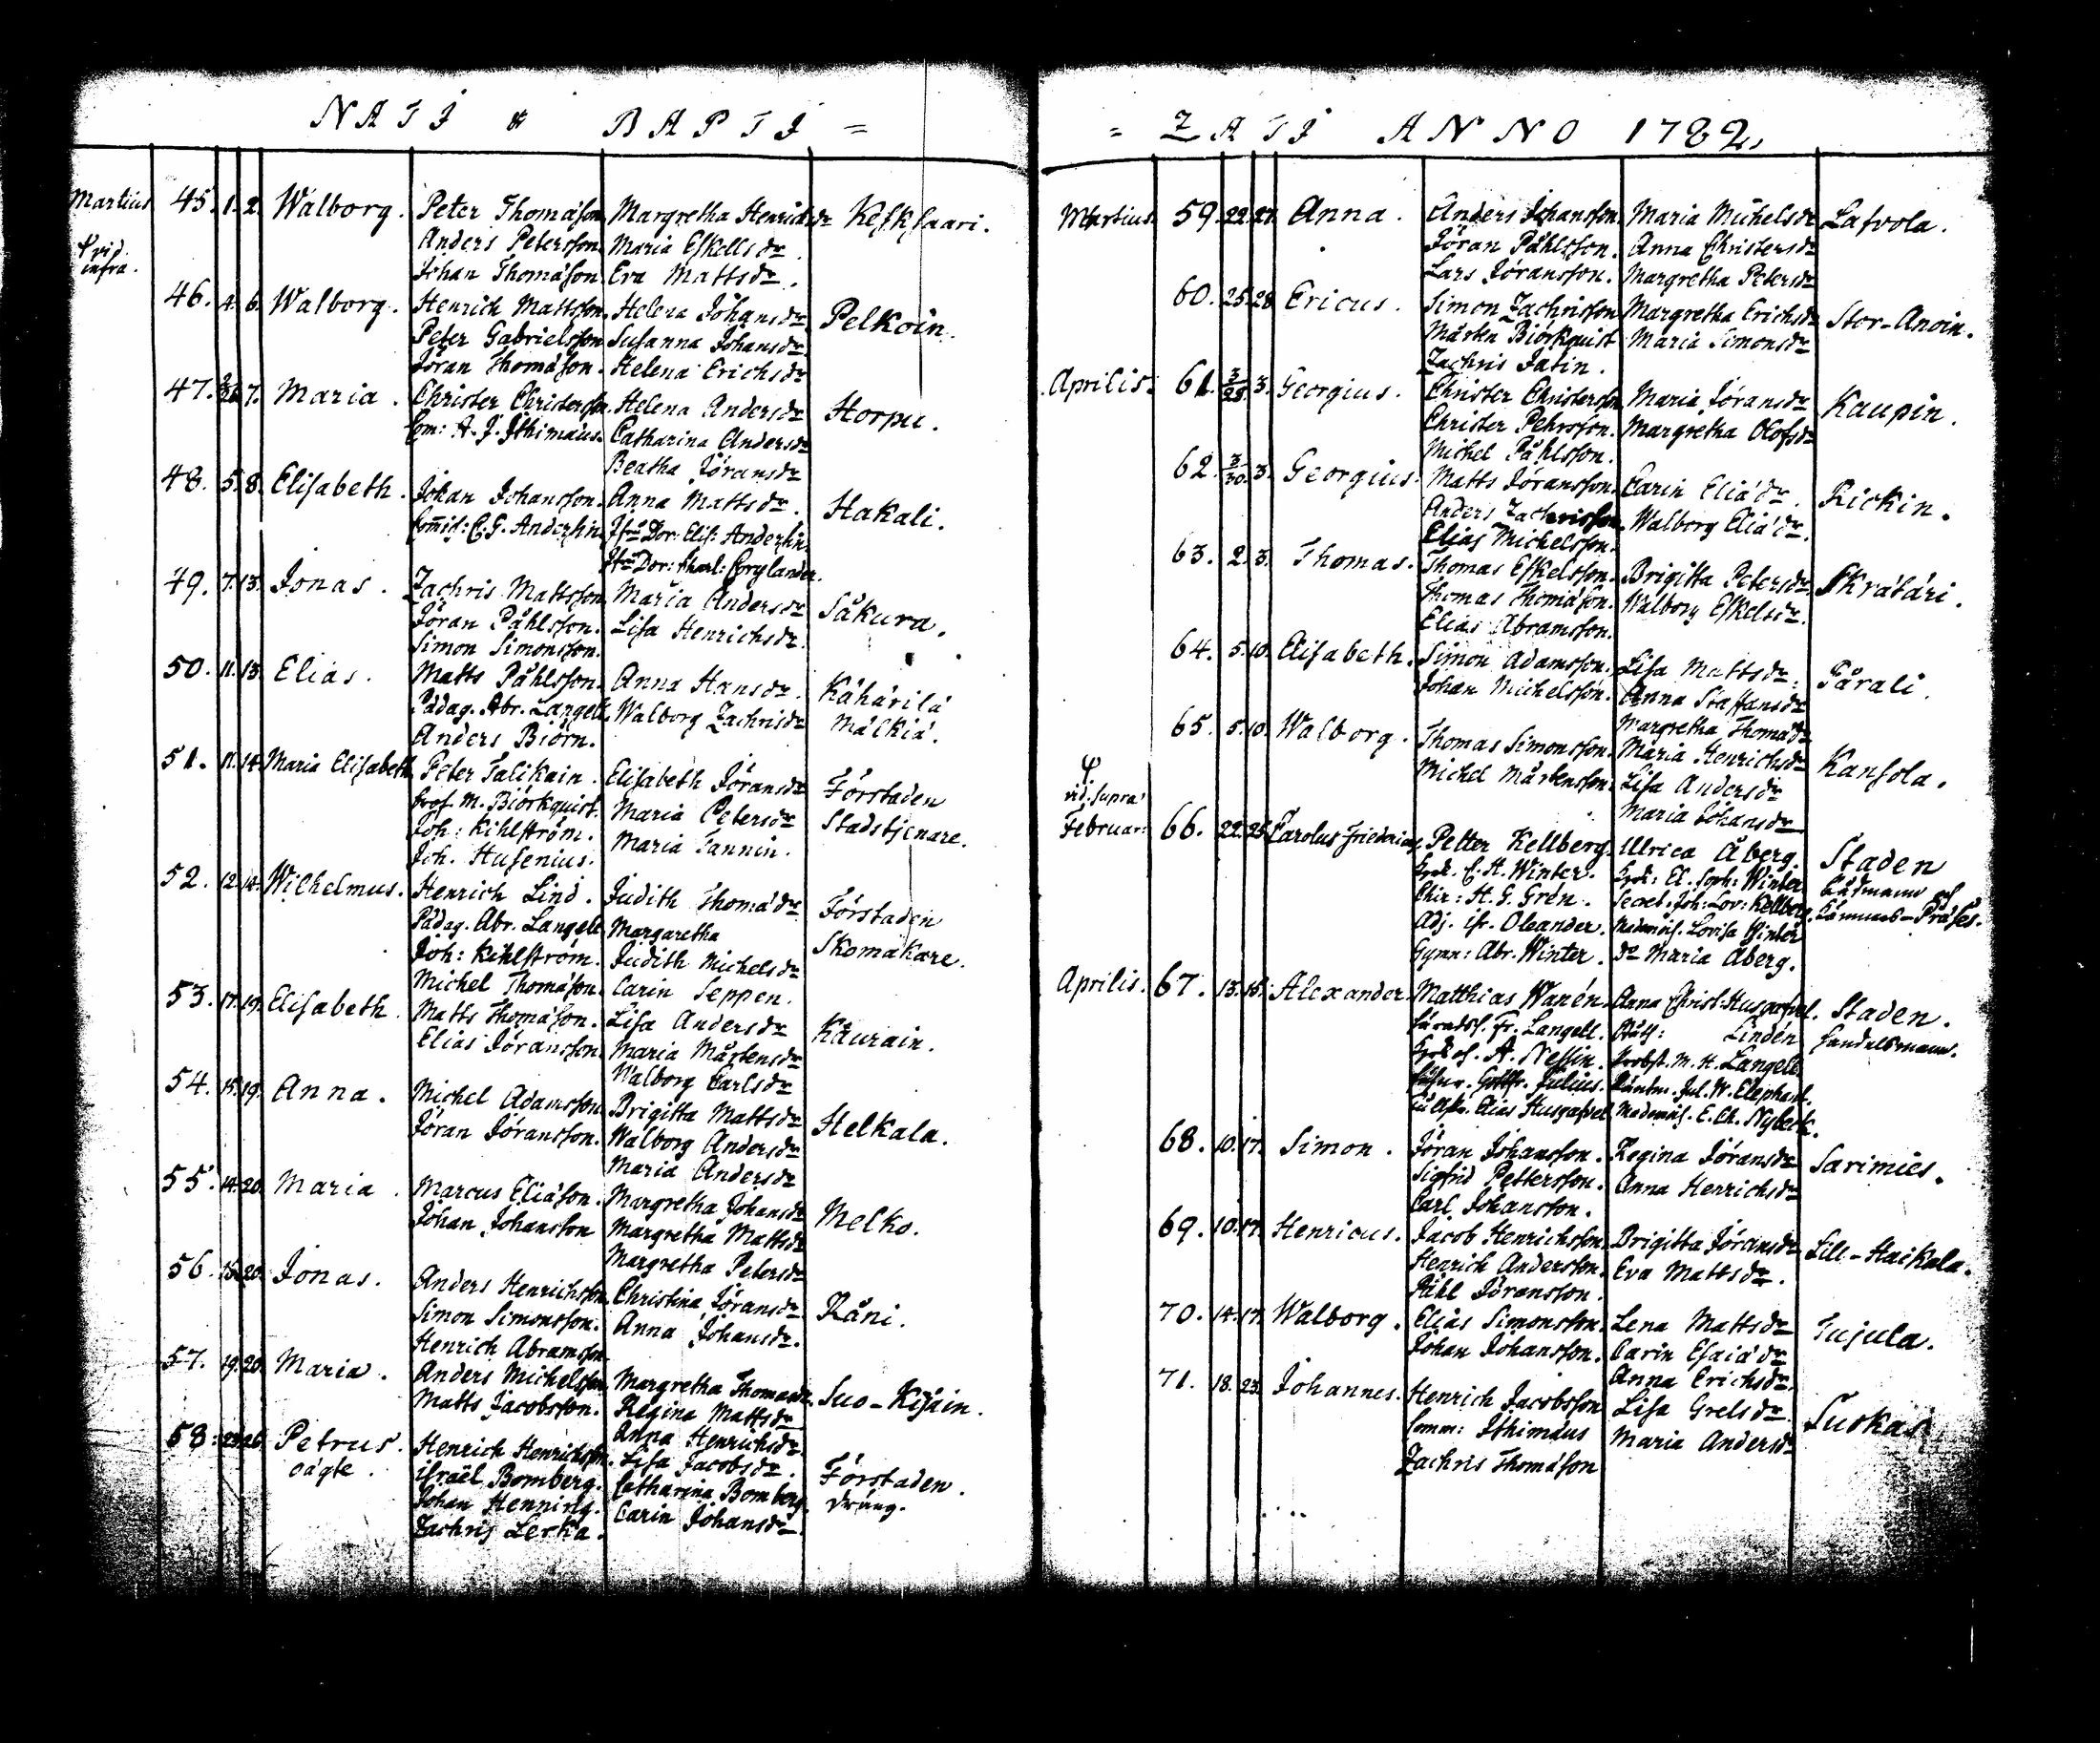 NATI & BAPTI =
Martius 45. 1. 2. Walborg. Peter Thomáson Margretha Henrichsdr Kefksaari.
ψ vid. infra. Anders Petersson Maria Eskellsdr.
Johan Thomáson Eva Mattsdr.
46. 4. 6. Walborg. Henrich Mattsson. Helena Johansdr Pelkoin.
Peter Gabrielsson Susanna Johansdr
Jöran Thomáson. Helena Erichsdr
47. 7. Maria. Christer Christersson. Helena Andersdr Horpu.
Com: A. J. Ithimäus. Catharina Andersdr
Beatha Jöransdr
48. 5. 8. Elisabeth. Johan Johansson. Anna Mattsdr. Hakali.
Commis: C. G. Andersin Jfru Dor: Elis: Andersin.
Jfru Dor: Charl: Corylander.
49. 7. 13. Jonas. Zachris Mattsson Maria Andersdr Säkura.
Jöran Påhlsson. Lisa Henrichsdr
Simon Simonsson.
50. 11. 13. Elias. Matts Påhlsson. Anna Hansdr. Kähärilä
Pädag. Abr. Langell. Walborg Zachrisdr Mälkiä.
Anders Biörn.
51. 11. 14. Maria Elisabeth Peter Talikain. Elisabeth Jöransdr Förstaden
M. Biörkquist. Maria Petersdr Stadstjenare.
Joh: Kihlström. Maria Tannin.
Joh. Husenius.
52. 12. 14. Wilhelmus. Henrich Lind. Judith Thomádr Förstaden
Pädag. Abr. Langell Margaretha Skomakare.
Joh: Kihlström. Judith Michelsdr
Michel Thomáson. Carin Seppen.
53. 17. 19. Elisabeth. Matts Thomáson. Lisa Andersdr Kaurain.
Elias Jöransson. Maria Mårtensdr
Walborg Carlsdr
54. 15. 19. Anna. Michel Adamsson Brigitta Mattsdr Helkala.
Jöran Jöransson. Walborg Andersdr
Maria Andersdr
55. 14. 20. Maria. Marcus Eliáson. Margretha Johansdr Melko.
Johan Johansson Margretha Mattsdr
Margretha Petersdr
56. 15. 20. Jonas. Anders Henrichsson. Christina Jöransdr Räni.
Simon Simonsson. Anna Johansdr.
Henrich Abramsson.
57. 19. 20. Maria. Anders Michelsson Margretha Thomasdr. Suo-Kisäin.
Matts Jacobsson. Regina Mattsdr
Anna Henrichsdr
58. 26. Petrus. Henrich Henrichsson. Lisa Jacobsdr. Förstaden.
oägte. Israël Bomberg. Catharina Bomberg. dräng.
Johan Henning. Carin Johansdr
Zachris Lerka.
= ZATI ANNO 1782.
Martius. 59. 22. 27. Anna. Anders Johansson. Maria Michelsdr Lafvola.
Jöran Påhlsson. Anna Christersdr
Lars Jöransson. Margretha Petersdr
60. 25. 28. Ericus. Simon Zachrisson Margretha Erichsdr Stor-Anoin.
Mårtn Biörkquist Maria Simonsdr
Zachris Jatin.
Aprilis. 61. 3/28. 3. Georgius. Christer Christersson Maria Jöransdr Kaupin.
Christer Pehrsson. Margretha Olofsdr
Michel Påhlsson.
62. 3/30. 3. Georgius. Matts Jöransson. Carin Eliádr. Rickin.
Anders Zachrisson. Walborg Eliádr.
Elias Michelsson.
63. 2. 3. Thomas. Thomas Eskelsson. Brigitta Petersdr Skrätäri.
Thomas Thomáson. Walborg Eskelsdr.
Elias Abramsson.
64. 5. 10. Elisabeth. Simon Adamsson. Lisa Mattsdr. Pärali.
Johan Michelsson. Anna Staffansdr
Margretha Thomádr
65. 5. 10. Walborg. Thomas Simonsson. Maria Henrichsdr Kansola.
Michel Mårtensson. Lisa Andersdr
Maria Johansdr
ψ. vid. supra
Februar: 66. 22. 25. Carolus Friedericus Petter Kellberg. Ulrica Åberg. Staden
C. H. Winter. El. Soph: Winter Rådmann och
Chir: H. G. Grén. Secret. Joh: Lov: Kellberg. Kämners-Präses.
Adj. Is. Oleander. Mademois. Lovisa Winter
Gymn: Abr. Winter. Dr Maria Åberg.
Aprilis. 67. 13. 15. Alexander. Matthias Wanén. Anna Christ. Husgafvel. Staden.
Fr. Langell. Lindén Handelsmann.
A. Nessin. Probst. M. H. Langell
Gottfr. Julius. Jul. W. Elephant.
Elias Husgafvel Mademois. E. Ch. Nybeck.
68. 10. 17. Simon. Jöran Johansson. Regina Jöransdr Sarimies.
Sigfrid Pettersson. Anna Henrichsdr
Carl Johansson.
69. 10. 17. Henricus. Jacob Henrichsson. Brigitta Jöransdr Lill-Haikala.
Henrich Andersson. Eva Mattsdr.
Påhl Jöransson.
70. 14. 17. Walborg. Elias Simonsson. Lena Mattsdr Tujula.
Johan Johansson. Carin Esaiádr
Anna Erichsdr.
71. 18. 23. Johannes. Henrich Jacobsson Lisa Grelsdr. Suokas
Comm: Ithimäus Maria Andersdr
Zachris Thomáson